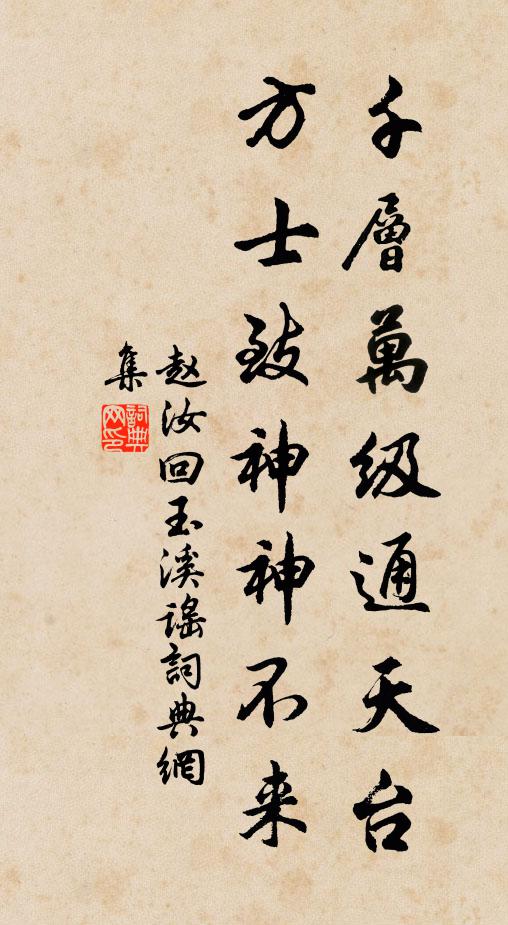 千層萬级通天台
方士致神神不来
赵汝回玉溪谣詞典網
集
詞典
网印